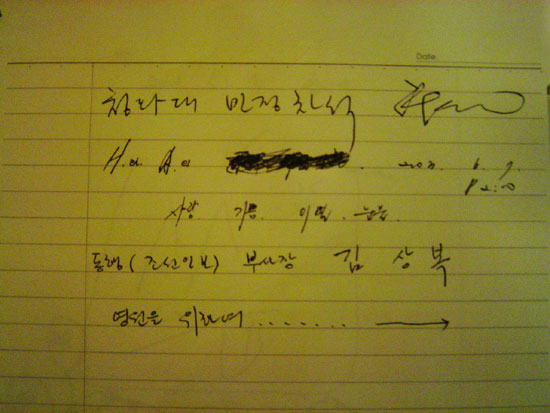 Date
청와대 만찬 참석
H.a A.a 2003. 6. 7.
P 2:10
사랑. 기쁨. 이별. 눈물.
동행(조선일보) 부사장 김상복
영원을 위하여.......→